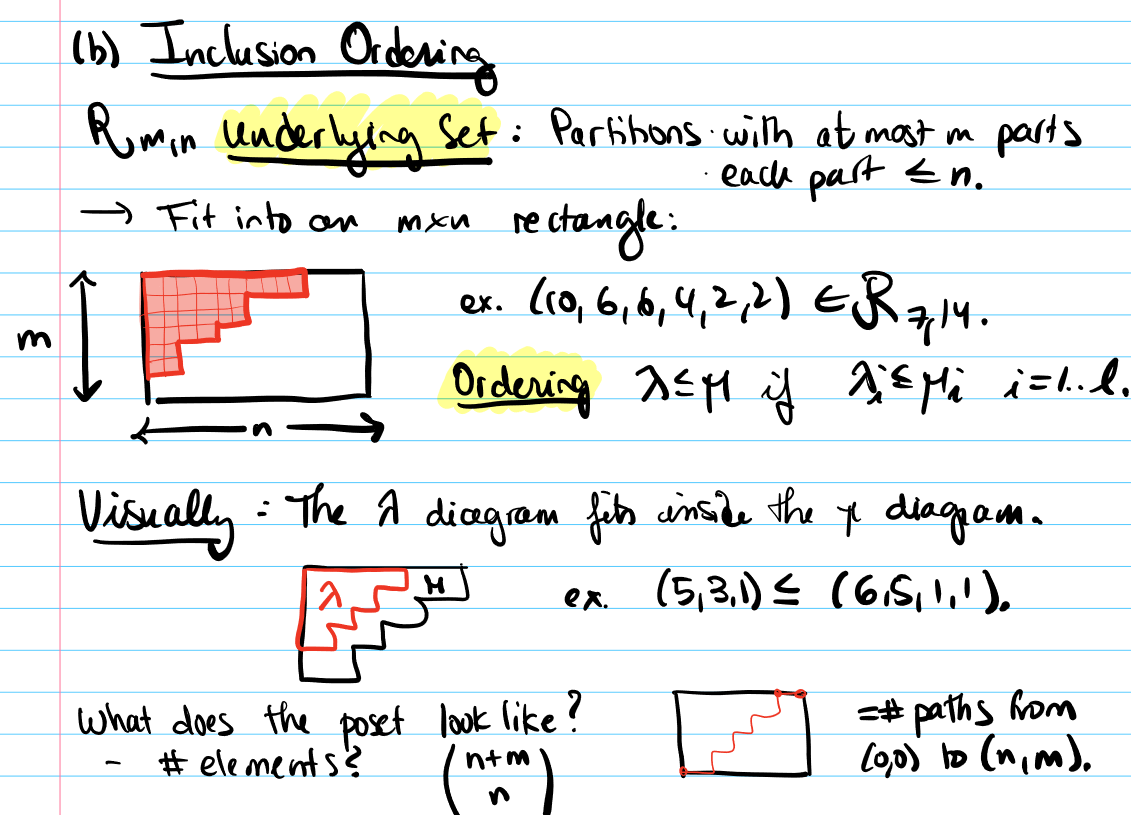 (b) Inclusion Ordering
R m,n Underlying Set: Partitions · with at most m parts
· each part ≤ n.
→ Fit into an m×n rectangle:
m
n
ex. (10, 6, 6, 4, 2, 2) ∈ R 7,14.
Ordering λ ≤ μ if λi ≤ μi i=1..l.
Visually: The λ diagram fits inside the μ diagram.
λ μ
ex. (5,3,1) ≤ (6,5,1,1).
What does the poset look like?
- # elements? (n+m
n)
=# paths from
(0,0) to (n,m).